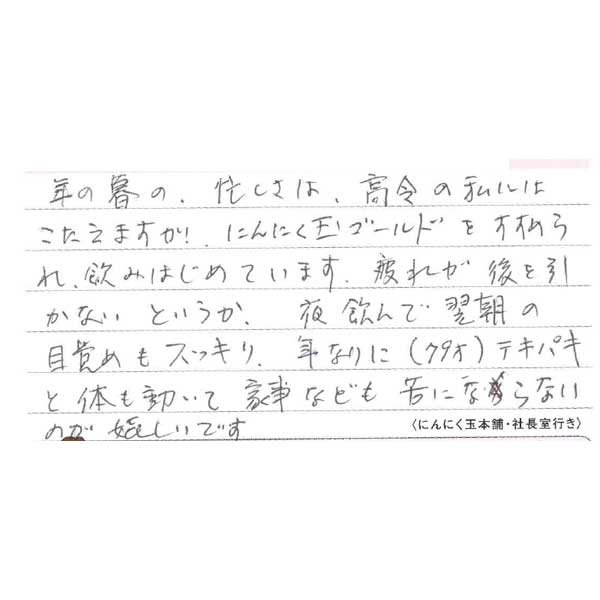 年の暮の、忙しさは、高令の私には
こたえますが!、にんにく玉ゴールドをすすめら
れ、飲みはじめています。疲れが後を引
かないというか、夜飲んで翌朝の
目覚めもスッキリ、年なりに(79才)テキパキ
と体も動いて家事なども苦にならない
のが嬉しいです
〈にんにく玉本舗・社長室行き〉